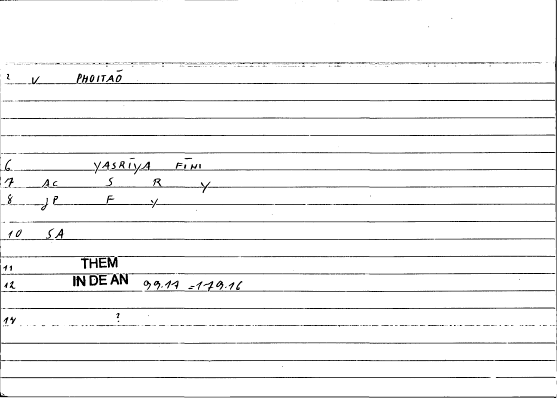 2 V PHOITAŌ
6 YASRĪYA FĪNI
7 AC S R Y
8 JP F Y
10 SA
11 THEM
12 IN DE AN 99.17 = 179.16
14 ?